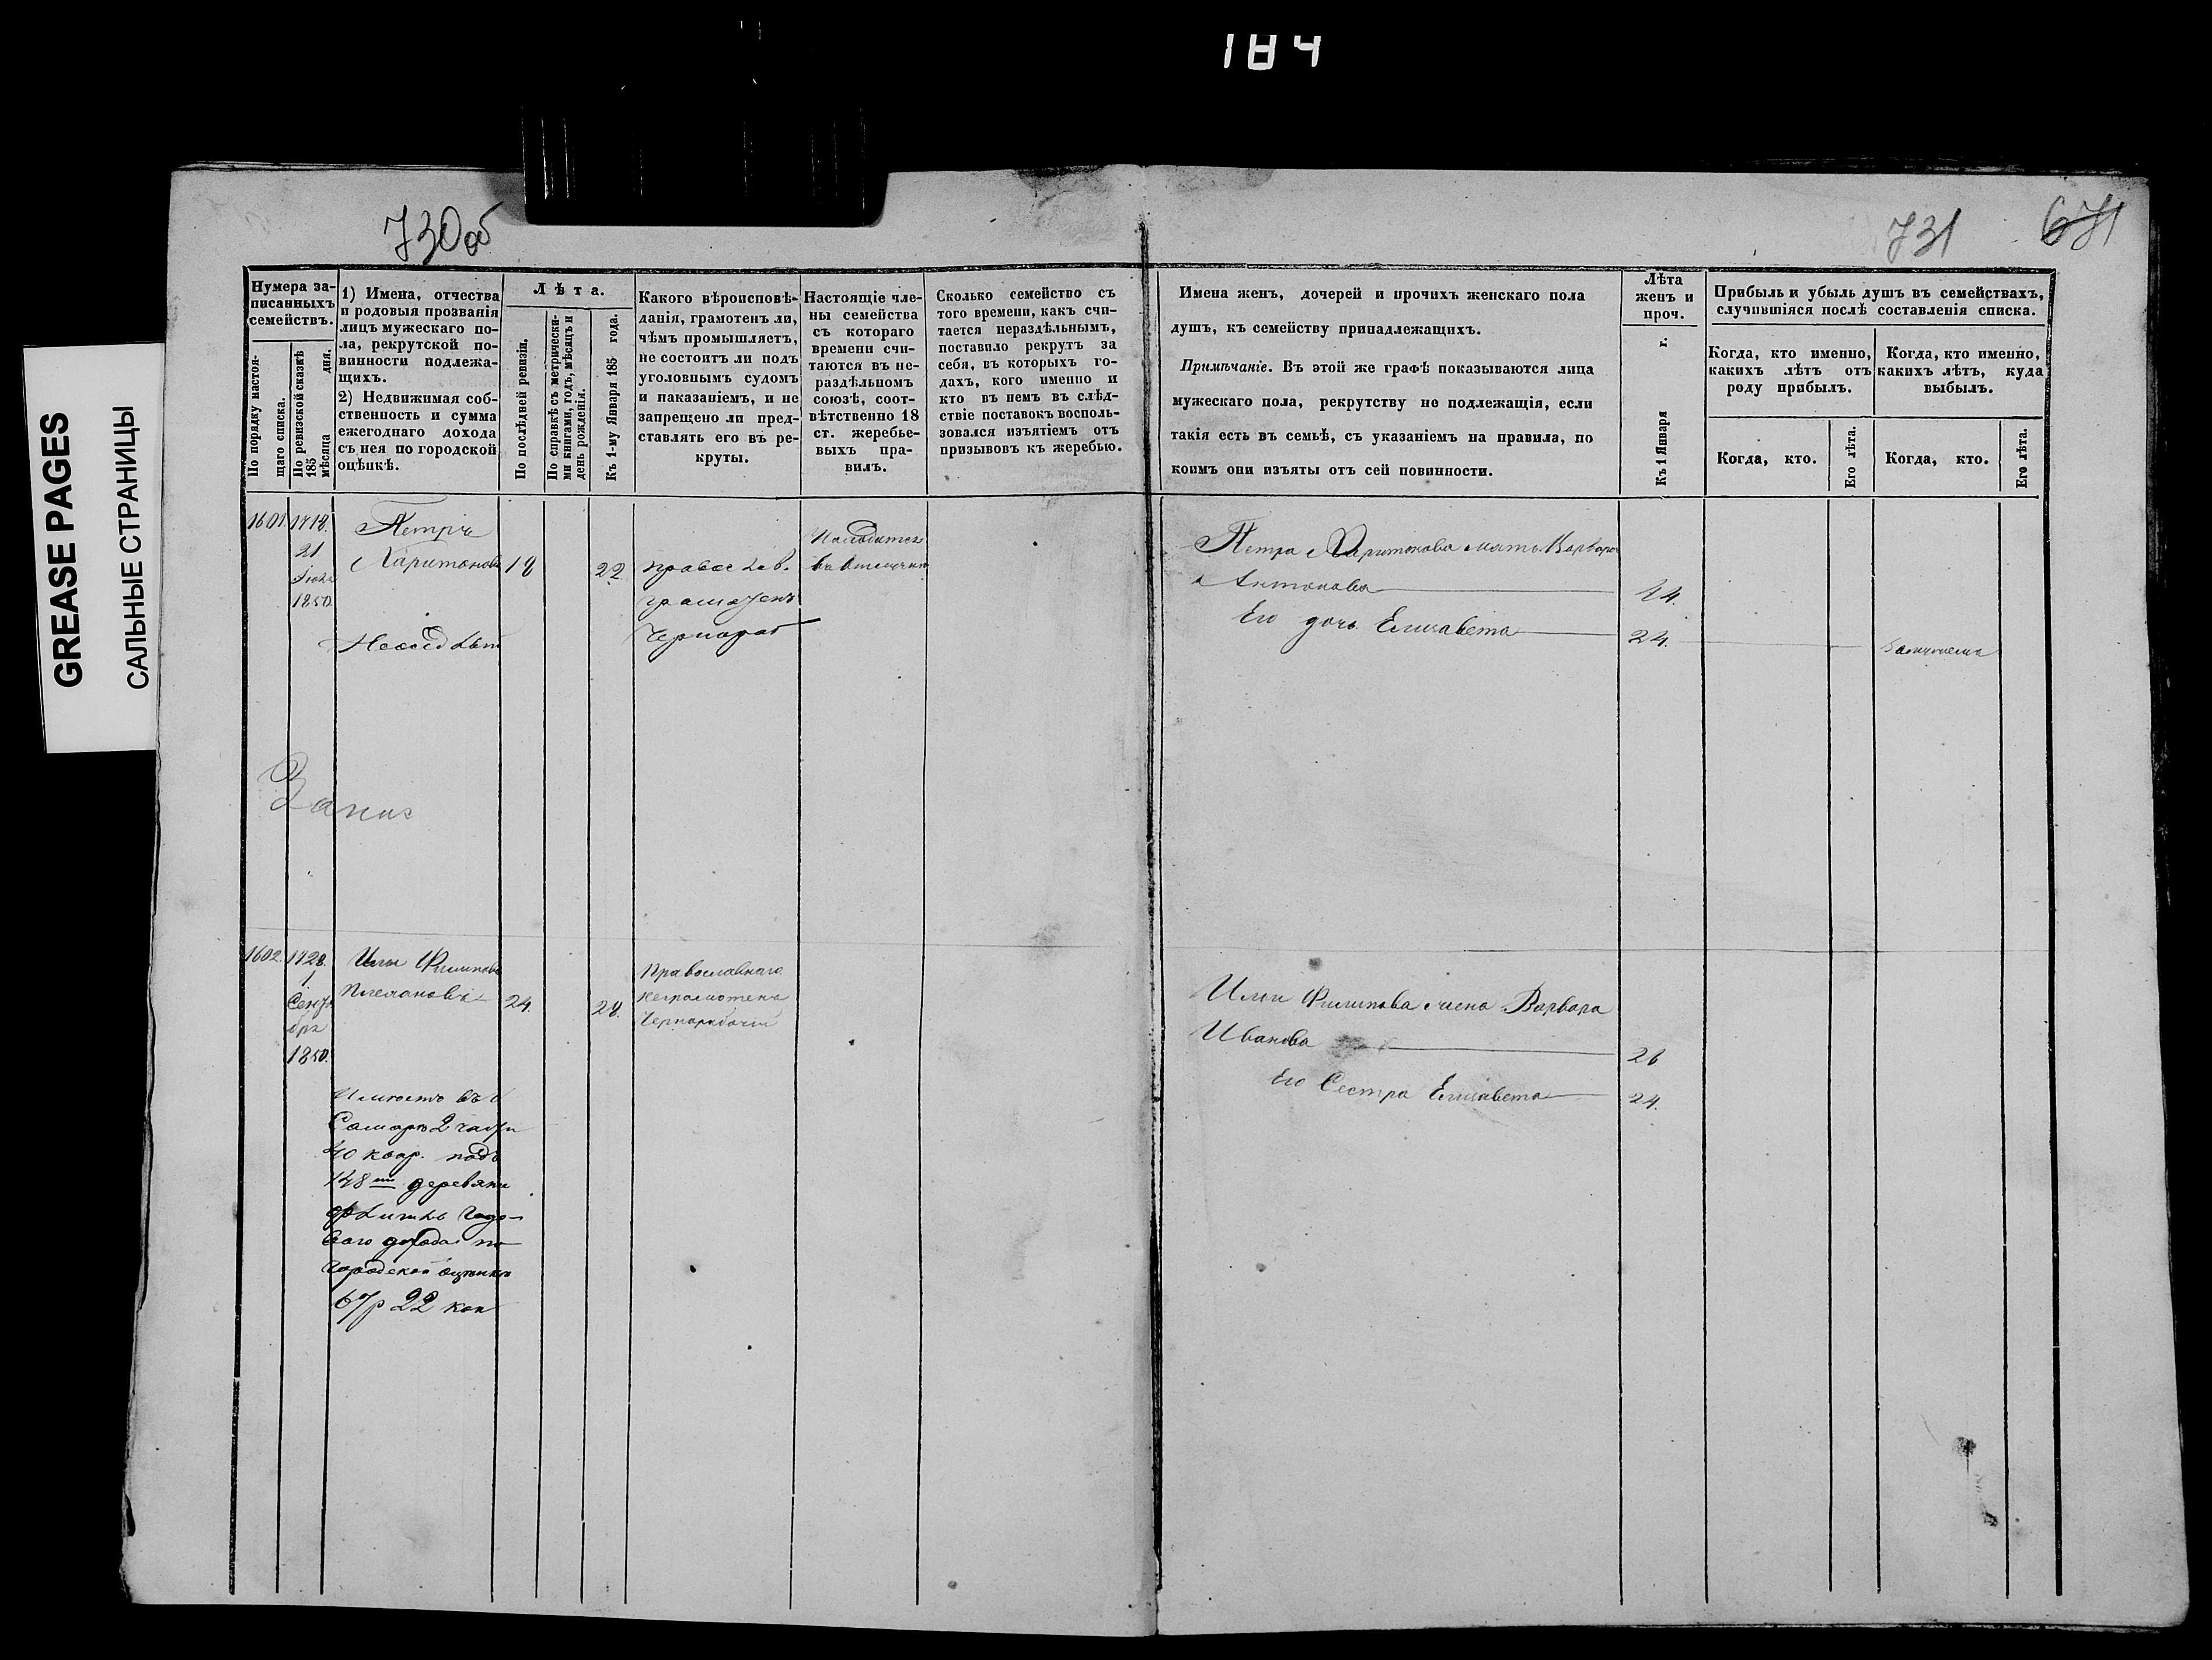 184
GREASE PAGES
САЛЬНЫЕ СТРАНИЦЫ
730об
731
671
Нумера за-
писанныхъ
семействъ.
По порядку настоя-
щаго списка.
По ревизской сказкѣ
185 мѣсяца дня.
1) Имена, отчества
и родовыя прозванія
лицъ мужескаго по-
ла, рекрутской по-
винности подлежа-
щихъ.
2) Недвижимая соб-
ственность и сумма
ежегоднаго дохода
съ нея по городской
оцѣнкѣ.
Лѣта.
По послѣдней ревизіи.
По справкѣ съ метрически-
ми книгами, годъ, мѣсяцъ и
день рожденія.
Къ 1-му Января 185 года.
Какого вѣроисповѣ-
данія, грамотенъ ли,
чѣмъ промышляетъ,
не состоитъ ли подъ
уголовнымъ судомъ
и наказаніемъ, и не
запрещено ли пред-
ставлять его въ ре-
круты.
Настоящіе чле-
ны семейства
съ котораго
времени счи-
таются въ не-
раздѣльномъ
союзѣ, соот-
вѣтственно 18
ст. жеребье-
выхъ пра-
вилъ.
Сколько семейство съ
того времени, какъ счи-
тается нераздѣльнымъ,
поставило рекрутъ за
себя, въ которыхъ го-
дахъ, кого именно и
кто въ немъ въ слѣд-
ствіе поставокъ восполь-
зовался изъятіемъ отъ
призывовъ къ жеребью.
Имена женъ, дочерей и прочихъ женскаго пола
душъ, къ семейству принадлежащихъ.
Примѣчаніе. Въ этой же графѣ показываются лица
мужескаго пола, рекрутству не подлежащія, если
такія есть въ семьѣ, съ указаніемъ на правила, по
коимъ они изъяты отъ сей повинности.
Лѣта
женъ и
проч.
Къ 1 Января г.
Прибыль и убыль душъ въ семействахъ,
случившіяся послѣ составленія списка.
Когда, кто именно,
какихъ лѣтъ отъ
роду прибылъ.
Когда, кто именно,
какихъ лѣтъ, куда
выбылъ.
Когда, кто.
Его лѣта.
Когда, кто.
Его лѣта.
1601
21
1850.
Петръ
Харитоновъ
18
22
православ.
грамотенъ
Чернораб
Находится
Петра Харитонова мать Варвара
Антонова
Его дочь Елизавета
24.
замужемъ
1602.
1728.
1
Сентя
бря
1850.
Илья Филиповъ
24.
28.
Православнаго
неграмотенъ
Чернорабочій
Ильи Филипова жена Варвара
Иванова
26
Его Сестра Елизавета
24.
Имѣетъ въ г
Самарѣ 2 части
40 квар. подъ
148 деревян
годо-
ваго дохода по
городской оцѣнкѣ
67р 22 коп